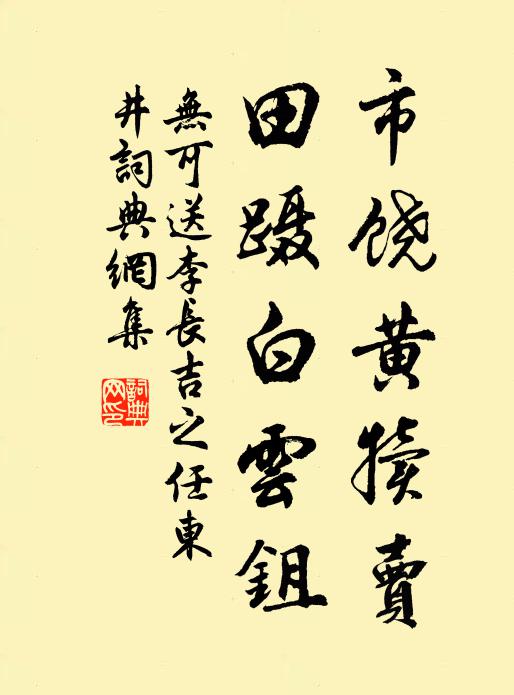 市饶黄犊賣
田蹑白雲鉏
無可送李長吉之任東
井詞典網集
詞典
网印